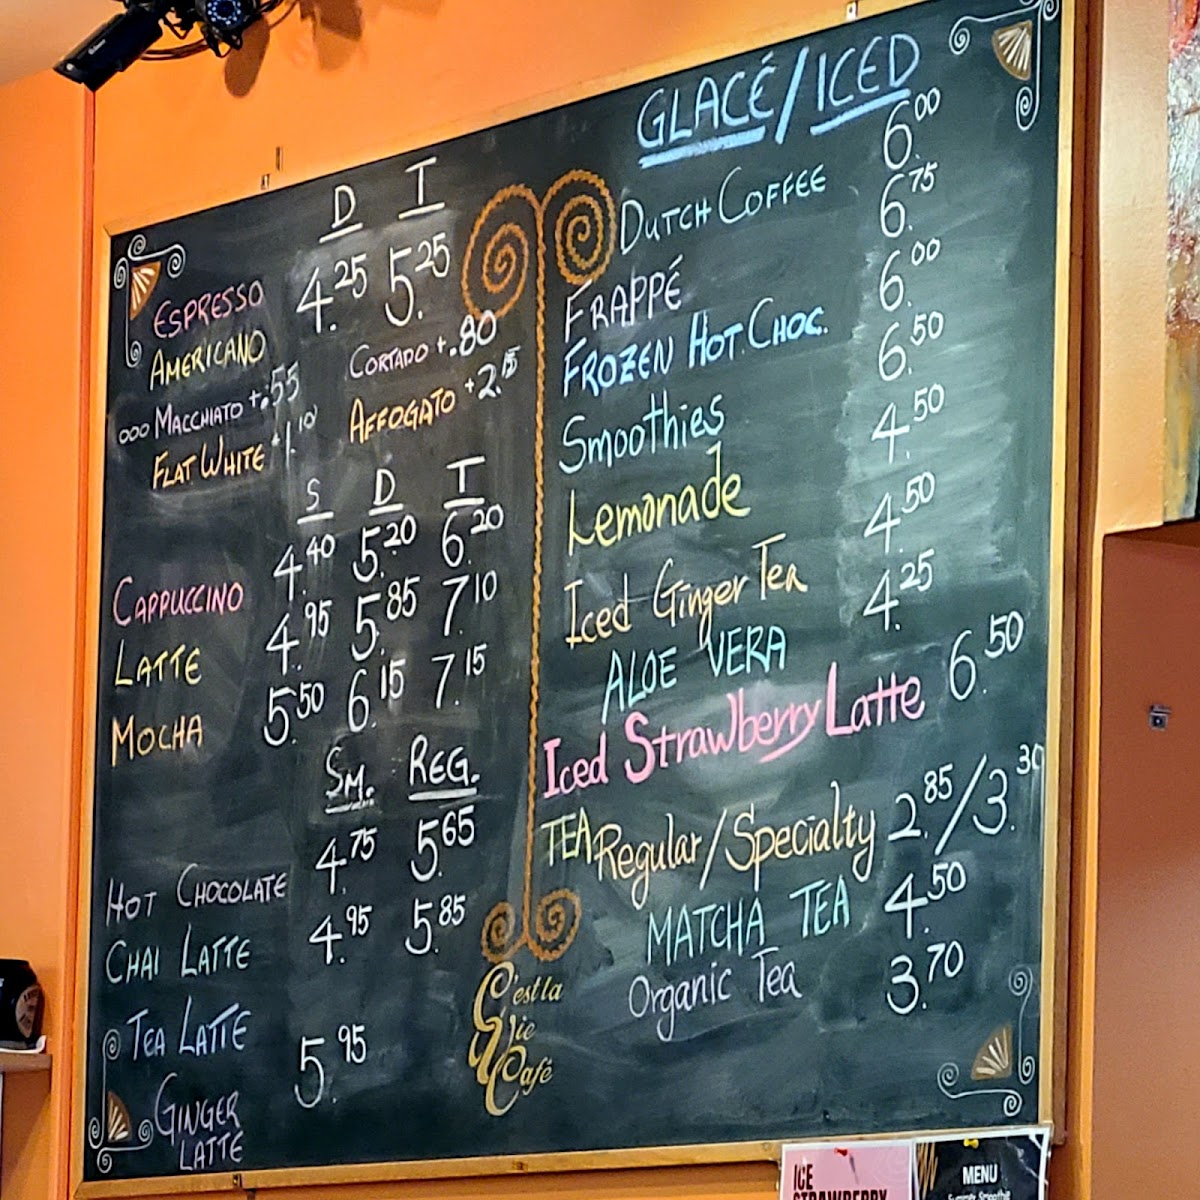 D T
ESPRESSO 4.25 5.25
AMERICANO
MACCHIATO +.55 CORTADO +.80
FLAT WHITE +1.10 AFFOGATO +2.15
S D T
CAPPUCCINO 4.40 5.20 6.20
LATTE 4.95 5.85 7.10
MOCHA 5.50 6.15 7.15
SM. REG.
HOT CHOCOLATE 4.75 5.65
CHAI LATTE 4.95 5.85
TEA LATTE
GINGER LATTE 5.95
GLACÉ/ICED
DUTCH COFFEE 6.00
FRAPPÉ 6.75
FROZEN HOT CHOC. 6.00
Smoothies 6.50
Lemonade 4.50
Iced Ginger Tea 4.50
ALOE VERA 4.25
Iced Strawberry Latte 6.50
TEA Regular/Specialty 2.85/3.30
MATCHA TEA 4.50
Organic Tea 3.70
C'est la
Vie
Café
ICE
STRAWBERRY
MENU
Summer Smoothie